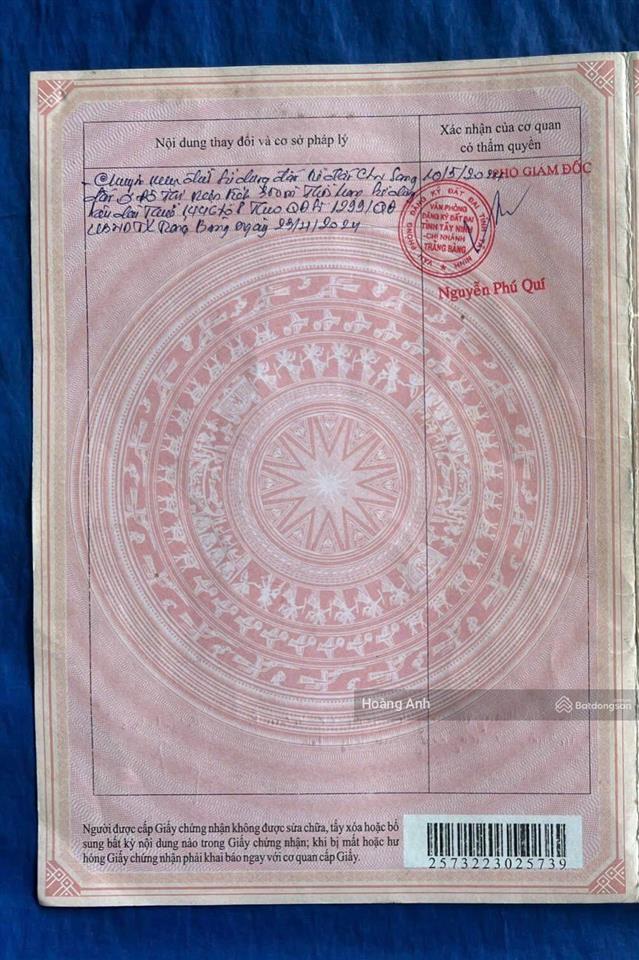 Nội dung thay đổi và cơ sở pháp lý
Xác nhận của cơ quan
có thẩm quyền
- Chuyển mục đích sử dụng đất từ đất Chy Sang
đất ở đô thị diện tích 300m² Thời hạn sử dụng
lâu dài Thuộc
UBND TX Trảng Bàng Ngày
PHÓ GIÁM ĐỐC
VĂN PHÒNG ĐĂNG KÝ ĐẤT ĐAI TỈNH TÂY NINH
VĂN PHÒNG
ĐĂNG KÝ ĐẤT ĐAI
TỈNH TÂY NINH
-CHI NHÁNH
TRẢNG BÀNG
Nguyễn Phú Quí
Hoàng Anh
Batdongsan
Người được cấp Giấy chứng nhận không được sửa chữa, tẩy xóa hoặc bổ
sung bất kỳ nội dung nào trong Giấy chứng nhận; khi bị mất hoặc hư
hỏng Giấy chứng nhận phải khai báo ngay với cơ quan cấp Giấy.
2573223025739